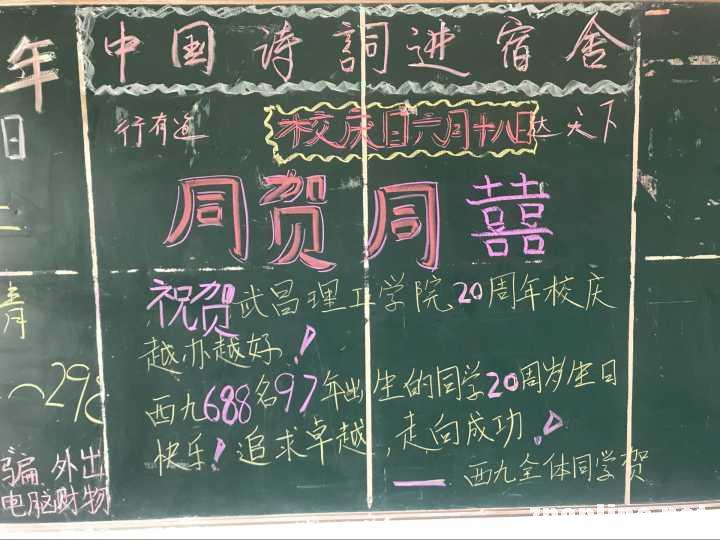 中国诗詞进宿舍
行有道 校庆日六月十八日 达天下
同贺同囍
祝贺武昌理工学院20周年校庆
越办越好!
西九688名97年出生的同学20周岁生日
快乐!追求卓越,走向成功!
——西九全体同学贺
年
日
二
青
~298
骗 外出
电脑财物